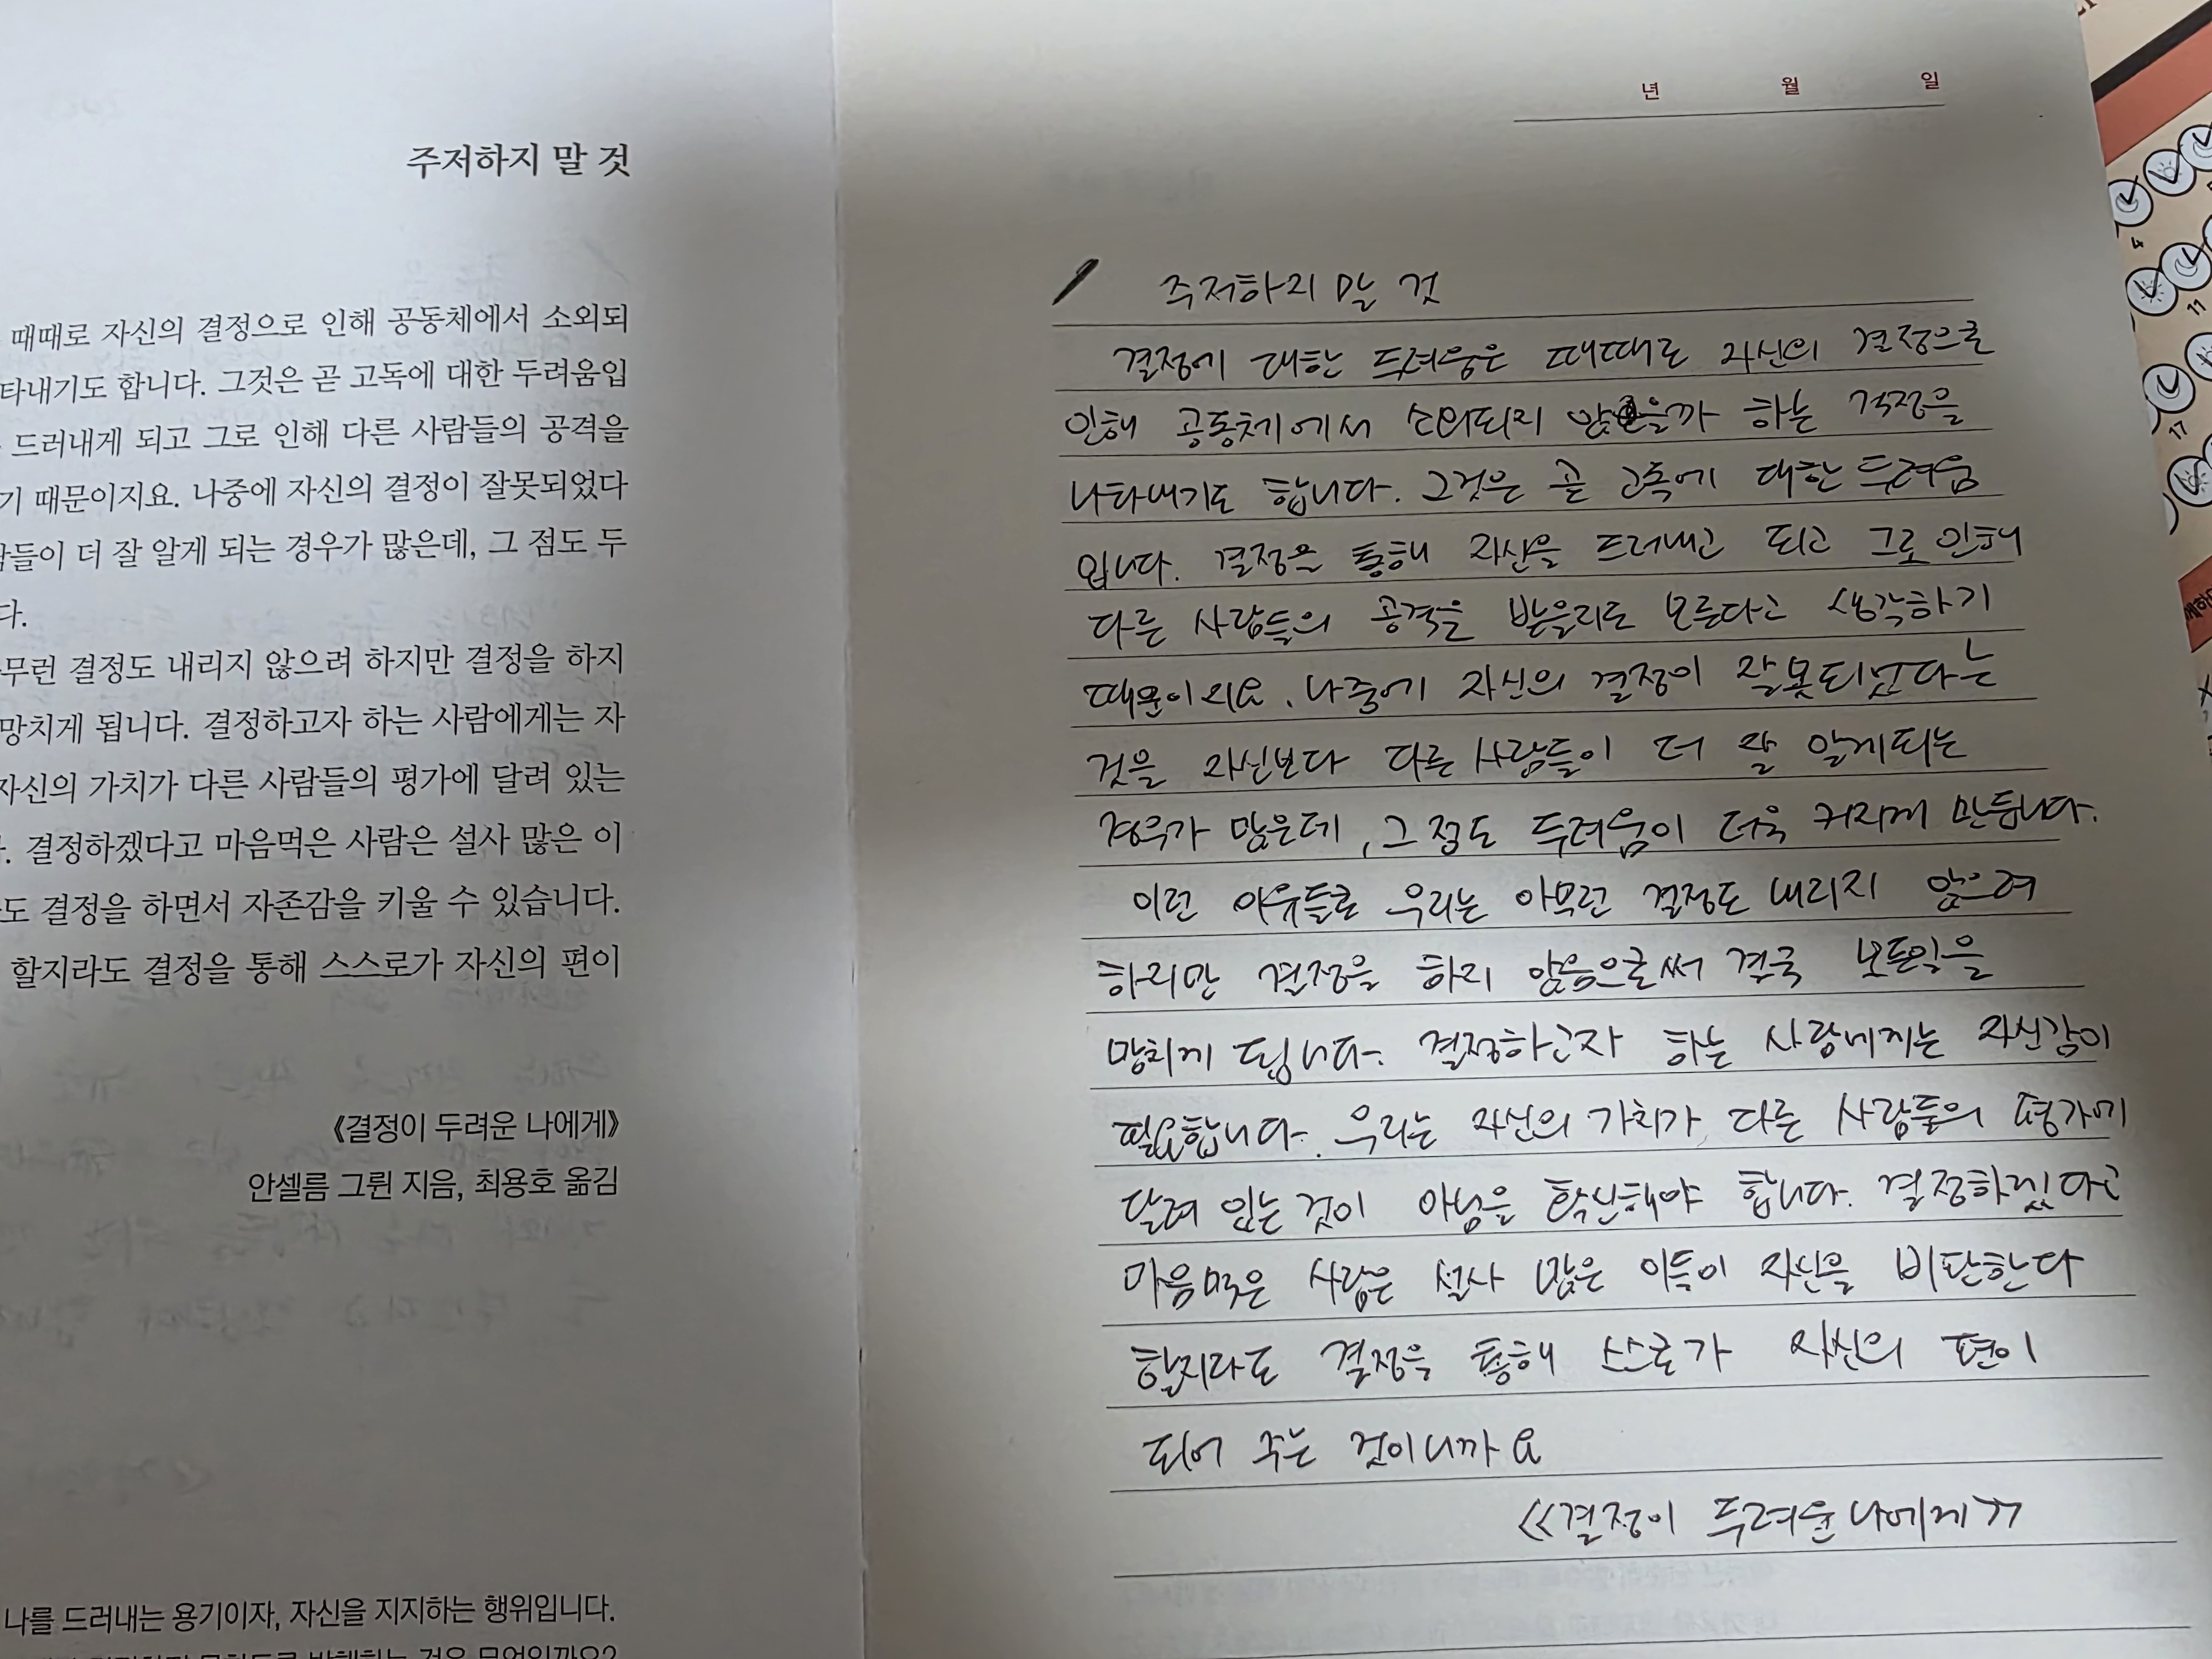 주저하지 말 것
때때로 자신의 결정으로 인해 공동체에서 소외되
타내기도 합니다. 그것은 곧 고독에 대한 두려움입
드러내게 되고 그로 인해 다른 사람들의 공격을
기 때문이지요. 나중에 자신의 결정이 잘못되었다
람들이 더 잘 알게 되는 경우가 많은데, 그 점도 두
다.
무런 결정도 내리지 않으려 하지만 결정을 하지
망치게 됩니다. 결정하고자 하는 사람에게는 자
자신의 가치가 다른 사람들의 평가에 달려 있는
. 결정하겠다고 마음먹은 사람은 설사 많은 이
도 결정을 하면서 자존감을 키울 수 있습니다.
할지라도 결정을 통해 스스로가 자신의 편이
《결정이 두려운 나에게》
안셀름 그륀 지음, 최용호 옮김
나를 드러내는 용기이자, 자신을 지지하는 행위입니다.
것은 무엇일까요?
년 월 일
주저하지 말 것
결정에 대한 두려움은 때때로 자신의 결정으로
인해 공동체에서 소외되지 않을까 하는 걱정을
나타내기도 합니다. 그것은 곧 고독에 대한 두려움
입니다. 결정을 통해 자신을 드러내고 되고 그로 인해
다른 사람들의 공격을 받을지도 모른다고 생각하기
때문이지요. 나중에 자신의 결정이 잘못되었다는
것을 자신보다 다른 사람들이 더 잘 알게되는
경우가 많은데, 그 점도 두려움이 더욱 커지게 만듭니다.
이런 이유들로 우리는 아무런 결정도 내리지 않으려
하지만 결정을 하지 않음으로써 결국 모든일을
망치게 됩니다. 결정하고자 하는 사람에게는 자신감이
필요합니다. 우리는 자신의 가치가 다른 사람들의 평가에
달려 있는 것이 아님을 확신해야 합니다. 결정하겠다고
마음먹은 사람은 설사 많은 이들이 자신을 비판한다
할지라도 결정을 통해 스스로가 자신의 편이
되어 주는 것이니까요
《결정이 두려운 나에게》
4
11
17